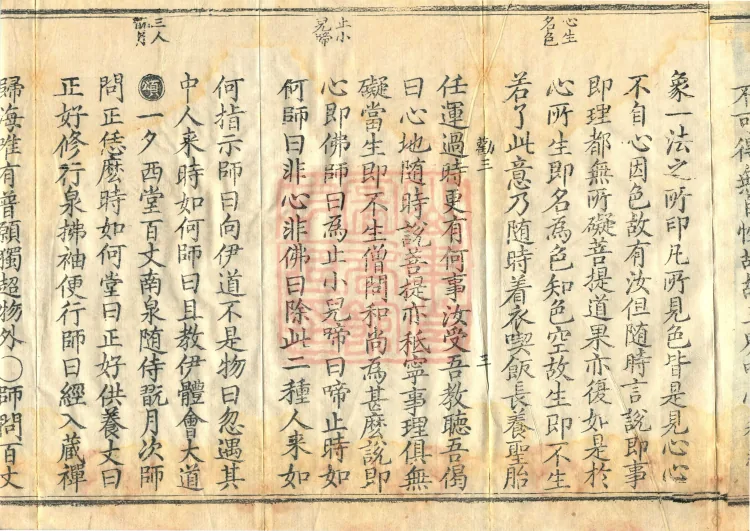 心生
名色
止小
兒啼
三人
翫月
不可得無自性故
象一法之所印凡所見色皆是見心心
不自心因色故有汝但随時言說即事
即理都無所礙菩提道果亦復如是於
心所生即名為色知色空故生即不生
若了此意乃随時着衣喫飯長養聖胎
勸三 三
任運過時更有何事汝受吾教聽吾偈
曰心地随時說菩提亦秪寧事理俱無
礙當生即不生僧問和尚為甚麽說即
心即佛師曰為止小兒啼曰啼止時如
何師曰非心非佛曰除此二種人来如
何指示師曰向伊道不是物曰忽遇其
中人来時如何師曰且教伊體會大道
頌一夕西堂百丈南泉随侍翫月次師
問正恁麽時如何堂曰正好供養丈曰
正好修行泉拂袖便行師曰經入蔵禪
歸海唯有普願獨超物外〇師問百丈